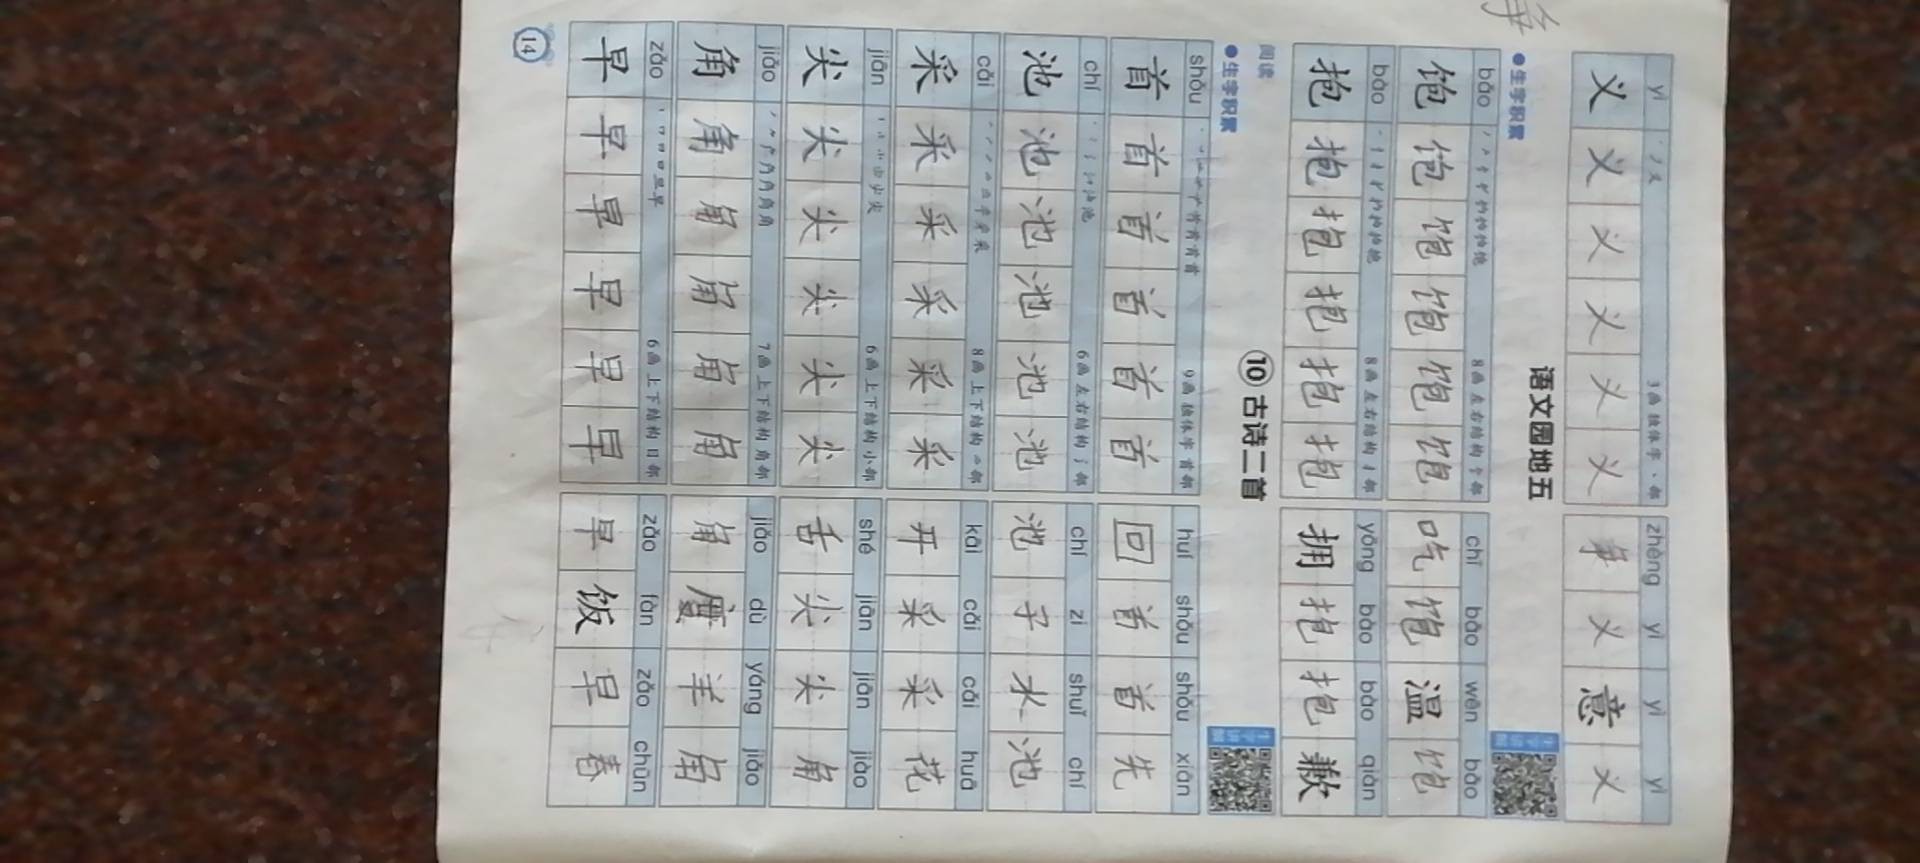 yì 丶丿义 3画 独体字 丶部 zhèng yì yì yì
义 义 义 义 义 义 争 义 意 义
语文园地五
●生字积累
生字讲解
bǎo 8画 左右结构 饣部 chī bǎo wēn bǎo
饱 饱 饱 饱 饱 饱 吃 饱 温 饱
bào 8画 左右结构 扌部 yōng bào bào qiàn
抱 抱 抱 抱 抱 抱 拥 抱 抱 歉
阅读 ⑩ 古诗二首
●生字积累
生字讲解
shǒu 9画 独体字 首部 huí shǒu shǒu xiān
首 首 首 首 首 首 回 首 首 先
chí 6画 左右结构 氵部 chí zi shuǐ chí
池 池 池 池 池 池 池 子 水 池
cǎi 8画 上下结构 爫部 kāi cǎi cǎi huā
采 采 采 采 采 采 开 采 采 花
jiān 6画 上下结构 小部 shé jiān jiān jiǎo
尖 尖 尖 尖 尖 尖 舌 尖 尖 角
jiǎo 7画 上下结构 角部 jiǎo dù yáng jiǎo
角 角 角 角 角 角 角 度 羊 角
zǎo 6画 上下结构 日部 zǎo fàn zǎo chūn
早 早 早 早 早 早 早 饭 早 春
14